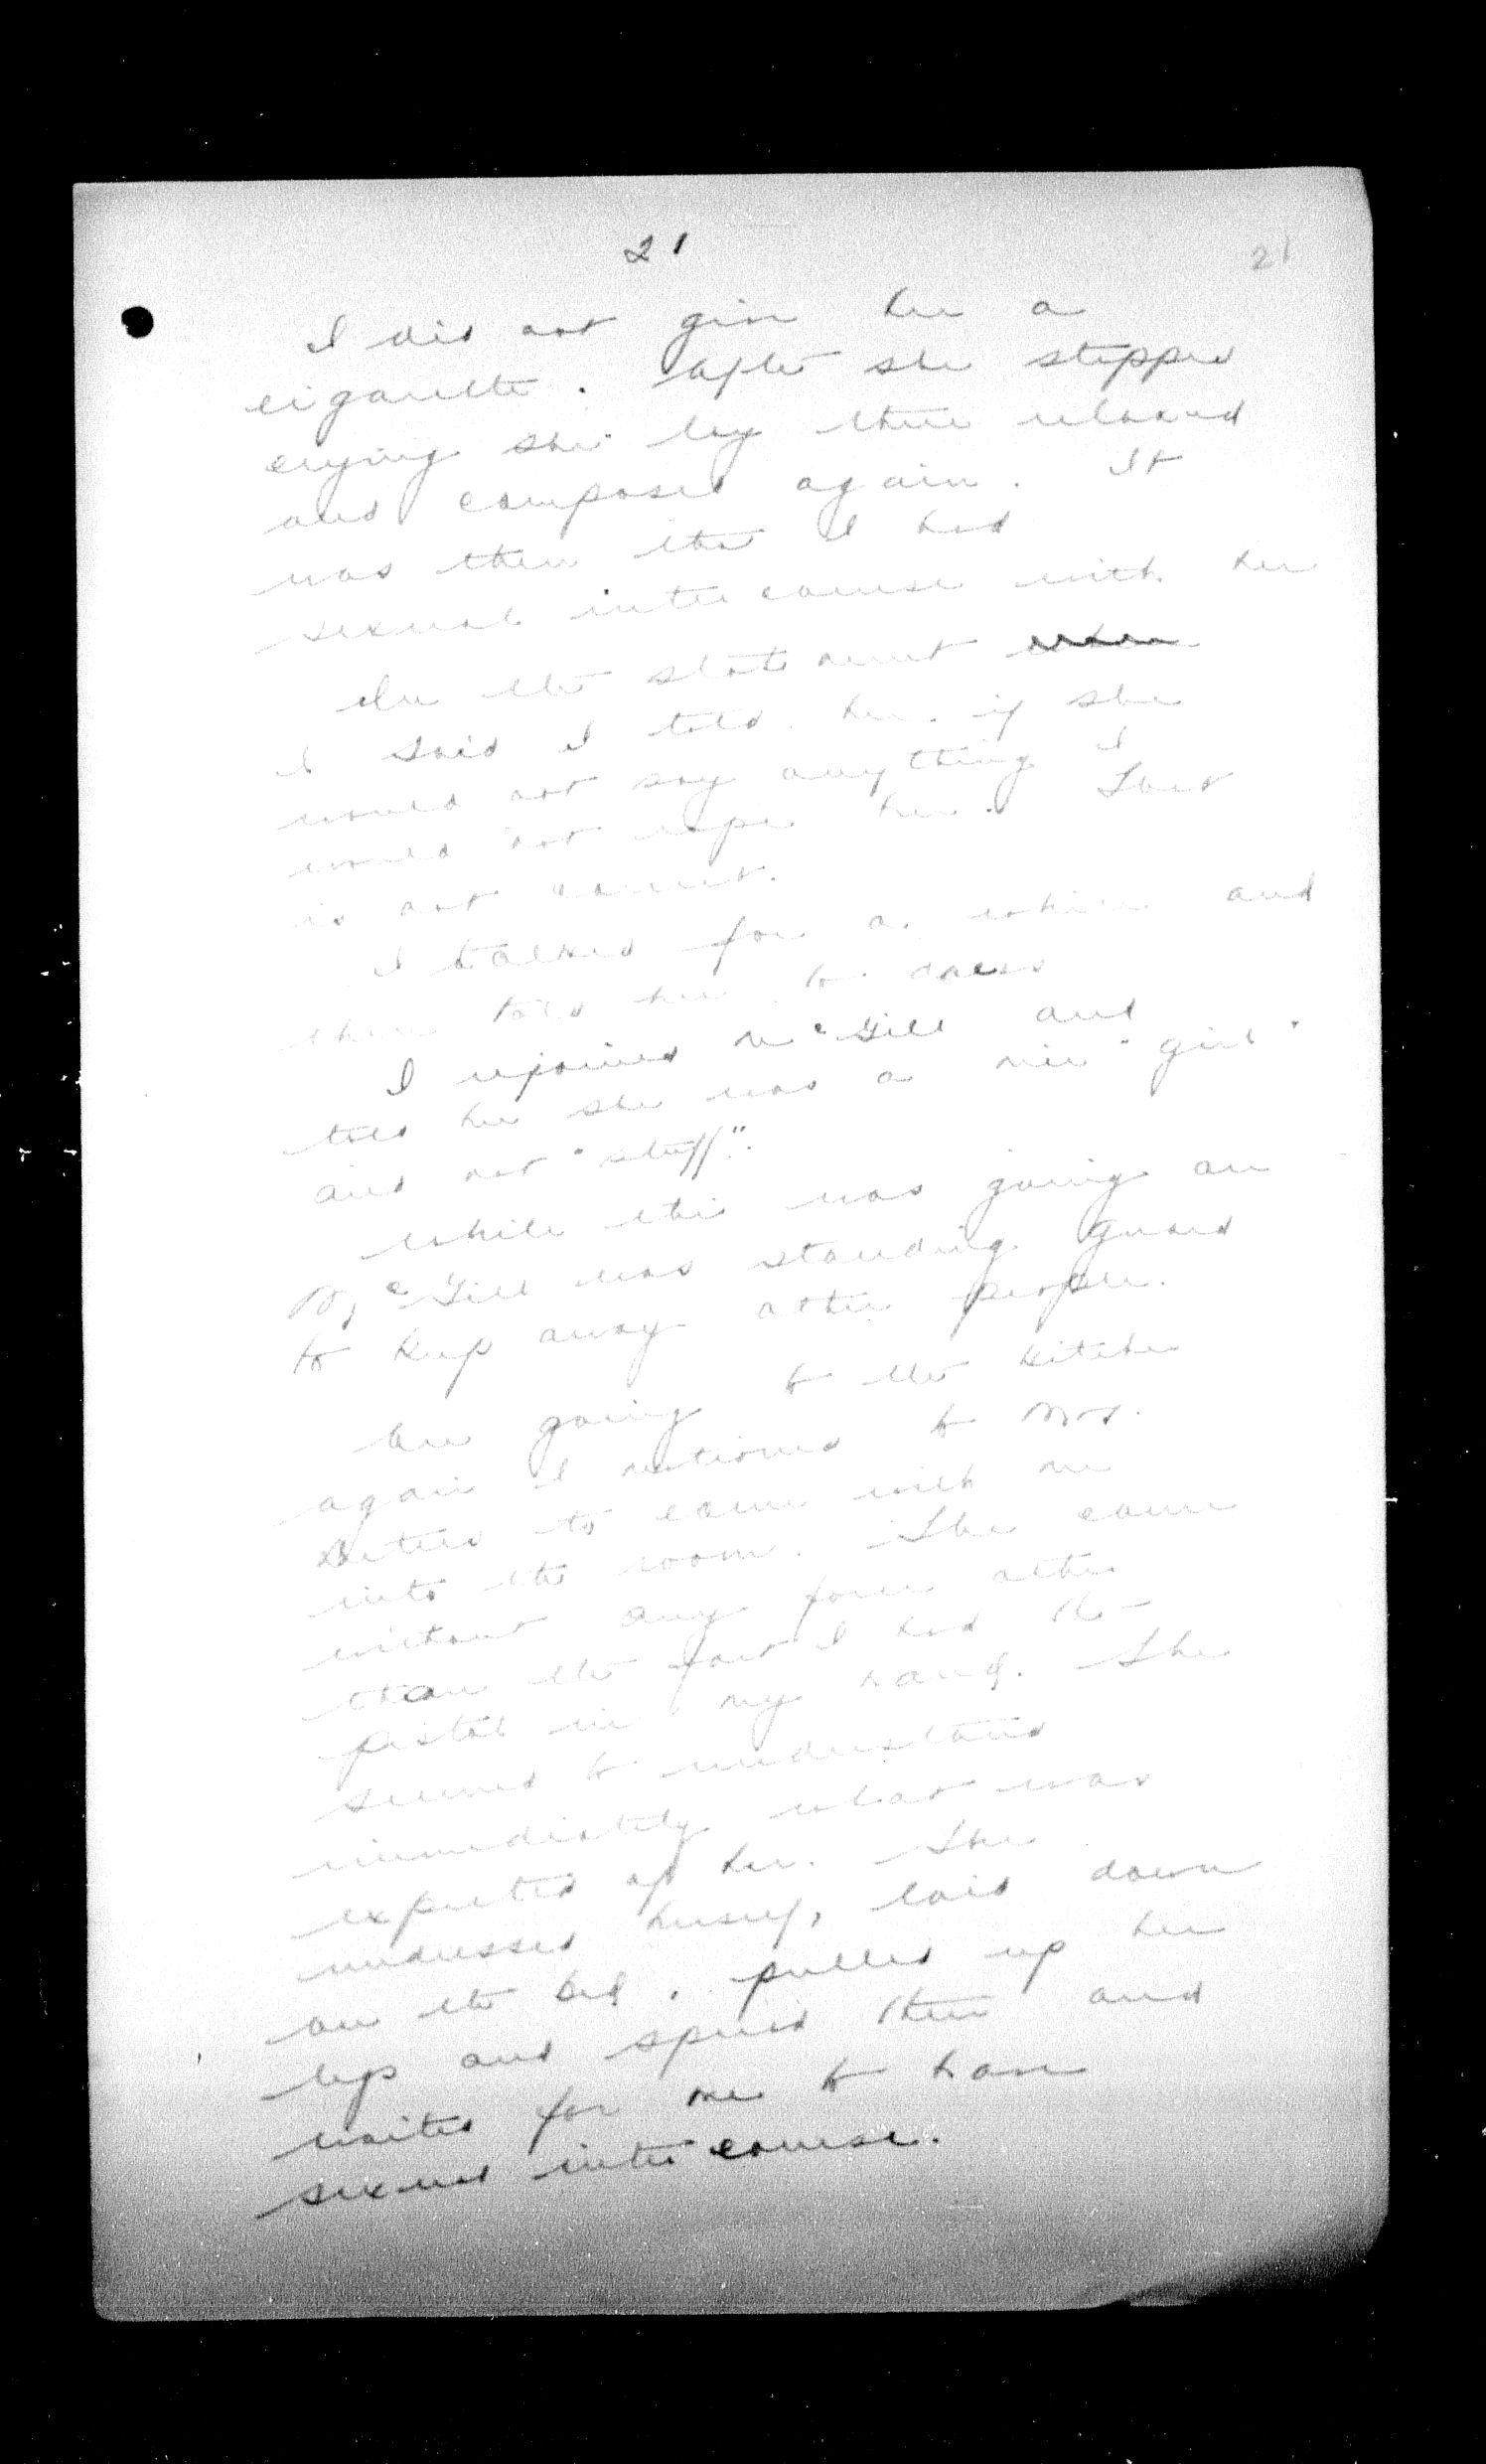 21
21
I did not give her a
cigarette. After she stopped
crying she lay there relaxed
and composed again. It
was then that I had
sexual intercourse with her
In the statement when
I said I told her if she
would not say anything I
would not rape her. That
is not correct.
I talked for a while and
then told her to dress
I rejoined McGill and
told her she was a nice "girl"
and not "stuff".
While this was going on
McGill was standing guard
to keep away other people.
On going to the kitchen
again I motioned to Mrs.
to come with me
into the room. She came
without any force other
than the fact I had the
pistol in my hand. She
seemed to understand
immediately what was
expected of her. She
undressed herself, laid down
on the bed, pulled up her
legs and spread them and
waited for me to have
sexual intercourse.